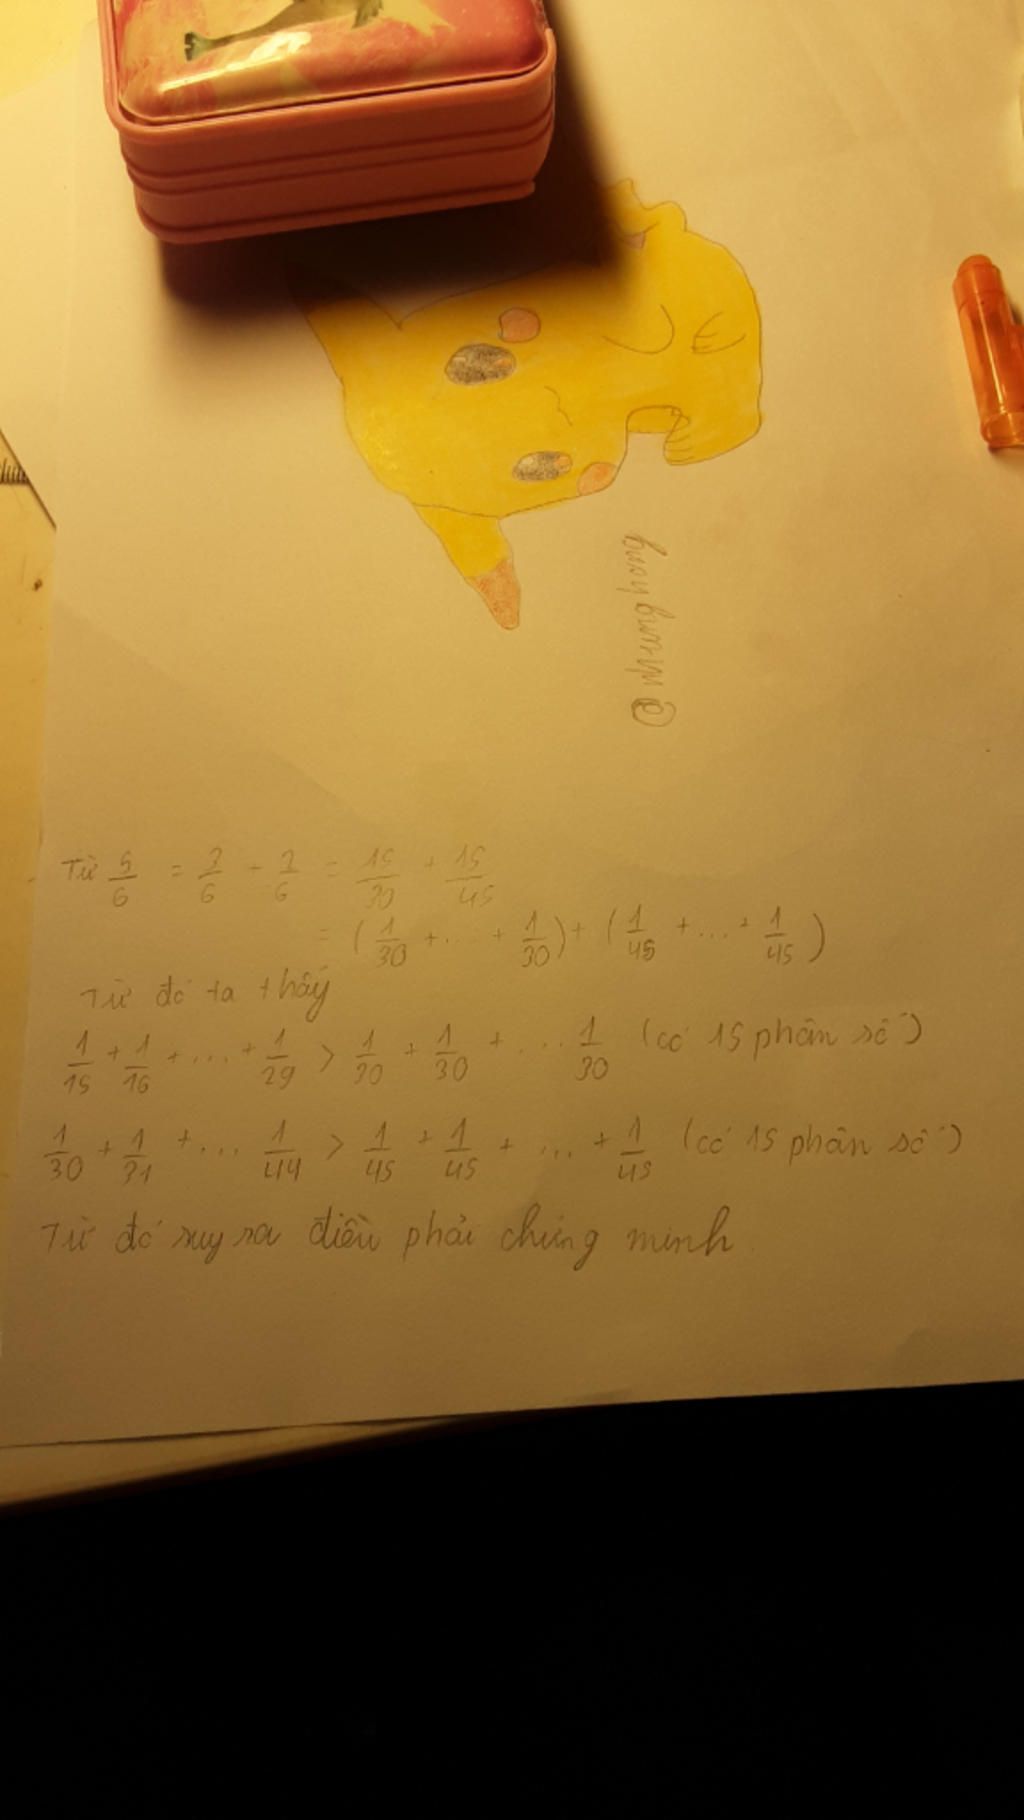 @nhungburyburry
Từ 5/6 = 3/6 + 2/6 = 15/30 + 15/45
= (1/30 + ... + 1/30) + (1/45 + ... + 1/45)
Từ đó ta thấy
1/15 + 1/16 + ... + 1/29 > 1/30 + 1/30 + ... 1/30 (có 15 phân số)
1/30 + 1/31 + ... 1/44 > 1/45 + 1/45 + ... + 1/45 (có 15 phân số)
Từ đó suy ra điều phải chứng minh